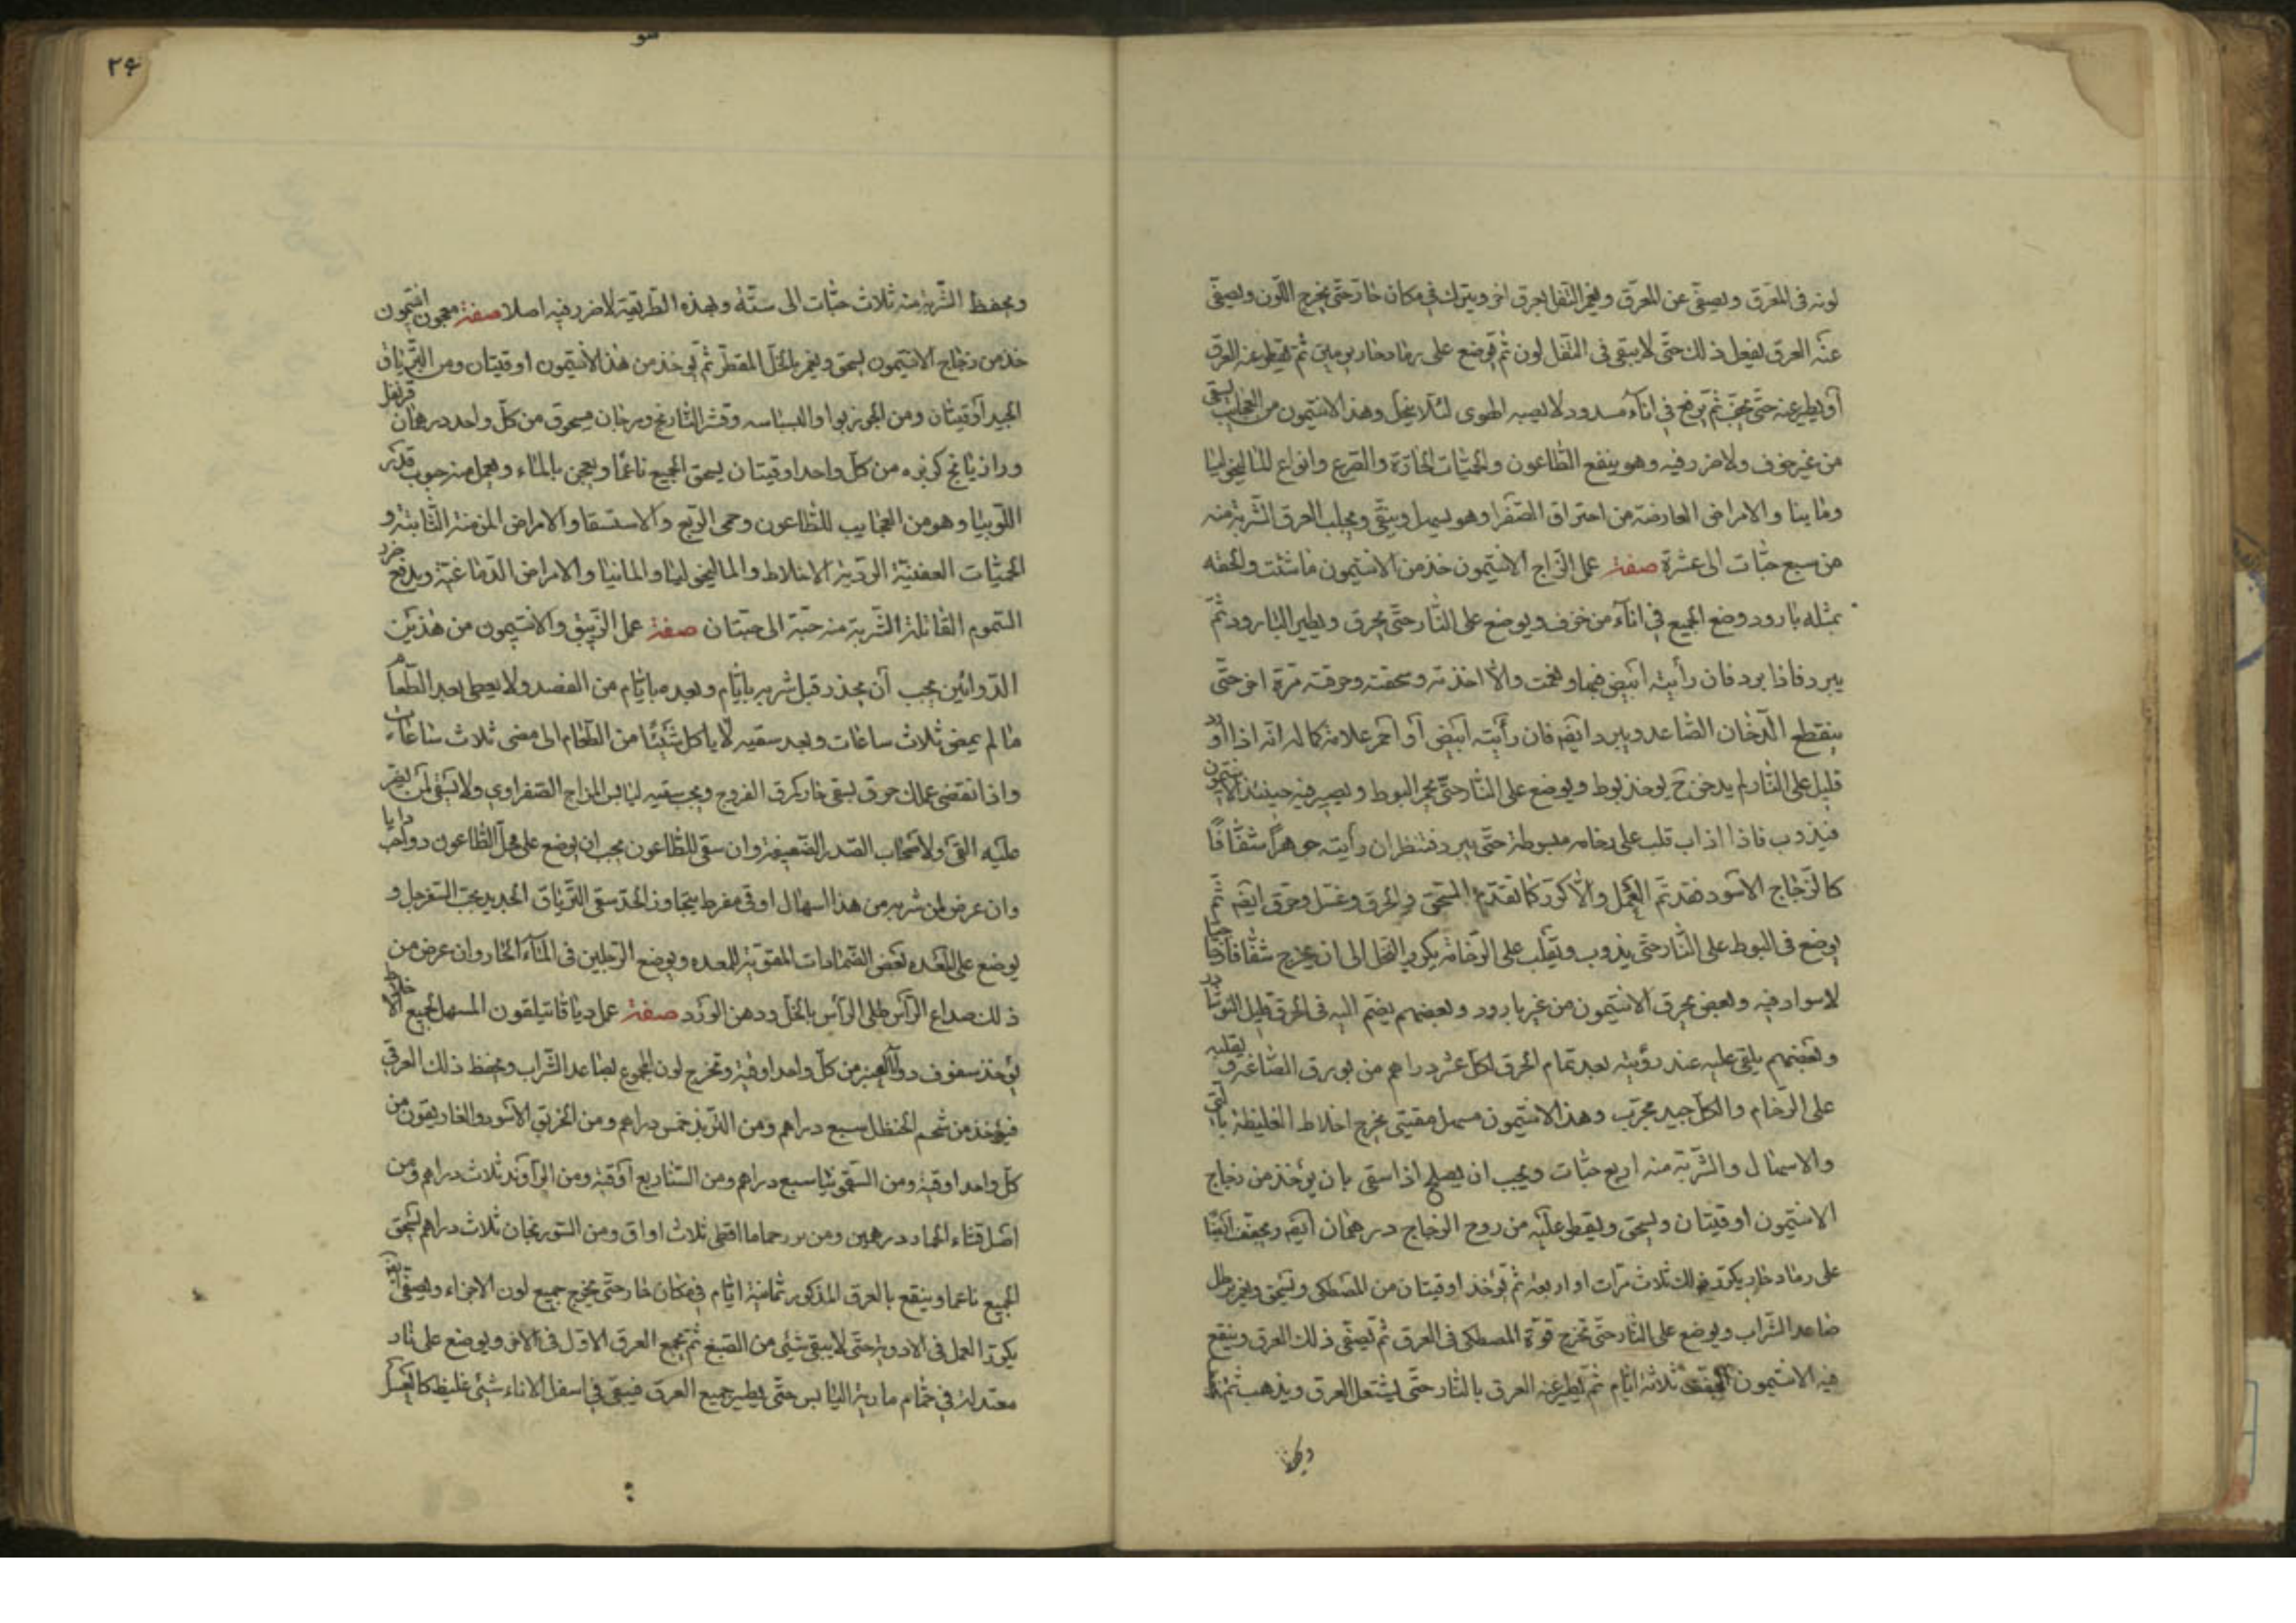 لونه في العرق ويصفى عن العرق ويغمر الثفل بعرق اخر ويترك في مكان حار حتى يخرج اللون ويصفى
عنه العرق يفعل ذلك حتى لا يبقى في الثفل لون ثم يوضع على رماد حار يومين ثم يقطر عنه العرق
أو يطير عنه حتى يجف ثم يرفع في اناء مسدود لا يصيبه الهوى لئلا ينحل وهذا الانتيمون من العجايب يسقى
من غير خوف ولا ضرر فيه وهو ينفع الطاعون والحميات الحادة والصرع وانواع الماليخوليا
ومانيا والامراض العارضة من احتراق الصفرا وهو يسهل وينقى ويجلب العرق الشربة منه
من سبع حبات الى عشرة صفة عمل الزاج الانتيمون خذ من الانتيمون ما شئت والحقه
بمثله بارود وضع الجميع في اناء من خزف ويوضع على النار حتى يحرق ويطير البارود ثم
يبرد فاذا برد فان رأيته ابيض فبها ونعمت والا اخذته وسحقته وحرقته مرة اخرى حتى
ينقطع الدخان الصاعد ويبرد ايضه فان رأيته ابيض أو احمر علامة كماله انه اذا اورد
قليل على النار لم يدخن ح يوخذ بوط ويوضع على النار حتى يحمر البوط ويصير فيه حينئذ الانتيمون
فيذوب فاذا اذاب قلب على رخامه مبسوطة حتى يبرد فتنظر ان رأيته جوهرا شفافا
كالزجاج الاسود فقد تم العمل والا كرر كما تقدم السحق والحرق وغسل وحرق ايضه ثم
يوضع في البوط على النار حتى يذوب ويقلب على الرخامة يكرر العمل الى ان يخرج شفافا صافيا
لا سواد فيه وبعض يحرق الانتيمون من غير بارود وبعضهم يضم اليه في الحرق قليل النوشادر
وبعضهم يلقى عليه عند رؤيته بعد تمام الحرق لكل عشر دراهم من بورق الصاغة ويقلبه
على الرخام والكل جيد مجرب وهذا الانتيمون مسهل مقيئ يخرج اخلاط الغليظة بالقى
والاسهال والشربة منه اربع حبات ويجب ان يصلح اذا سقى بان يؤخذ من زجاج
الانتيمون اوقيتان ويسحق ويقطر عليه من روح الزجاج درهمان ايضه ويجفف ايضا
على رماد حار يكرر ذلك ثلاث مرات او اربعه ثم يؤخذ اوقيتان من المصطكى ويسحق ويغمر برطل
صاعد الشراب ويوضع على النار حتى تخرج قوة المصطكى في العرق ثم يصفى ذلك العرق وينقع
فيه الانتيمون ثلاثة ايام ثم يطير عنه العرق بالنار حتى يشتعل العرق ويذهب ثم
٢۶
ويحفظ الشربة منه ثلاث حبات الى ستة وبهذه الطريقة لا ضرر فيه اصلا صفة معجون انتيمون
خذ من زجاج الانتيمون يسحق ويغمر بالخل المقطر ثم يؤخذ من هذا الانتيمون اوقيتان ومن الترياق
الجيد اوقيتان ومن الجوزبوا والبسباسه وقشر النارنج ومرجان مسحوق من كل واحد درهمان قرنفل
ورازيانج كزبره من كل واحد اوقيتان يسحق الجميع ناعما ويعجن بالماء ويعمل منه حبوب قدر
اللوبيا وهو من العجايب للطاعون وحمى الربع والاستسقا والامراض المزمنة الثابتة و
الحميات العفنية الردية الاخلاط والماليخوليا والمانيا والامراض الدماغية ويدفع ضرر
السموم القاتلة الشربة منه حبة الى حبتان صفة عمل الزيبق والانتيمون من هذين
الدوائين يجب أن يحذر قبل شربه بايام وبعده بايام من الفصد ولا يعطى بعد الطعام
ما لم يمضى ثلاث ساعات وبعد سقيه لا ياكل شيئا من الطعام الى مضى ثلاث ساعات
واذا انقضى عملك مرق يسقى حار كمرق الفروج ويجب سقيه ليابس المزاج الصفراوي ولا يسقى لمن يضر
عليه القى ولا اصحاب الصدر الضعيفة وان سقى للطاعون يجب ان يوضع على محل الطاعون دوا جدايا
وان عرض لمن شربه من هذا اسهال او قى مفرط يتجاوز الحد سقى الترياق الجديد بحب السفرجل و
يوضع على المعده بعض الضمادات المقوية للمعده ويوضع الرجلين في الماء الحار وان عرض من
ذلك صداع الرأس طلى الرأس بالخل ودهن الورد صفة عمل دياقاتيلقون المسهل لجميع الاخلاط
يؤخذ سفوف دوا العنبر من كل واحد اوقية وتخرج لون المجموع بصاعد الشراب ويحفظ ذلك العرق
فيؤخذ من شحم الحنظل سبع دراهم ومن التربذ خمس دراهم ومن الخربق الاسود والغاريقون من
كل واحد اوقية ومن السقمونيا سبع دراهم ومن السنا ربع أوقية ومن الراوند ثلاث دراهم ومن
اصل قثاء الحمار درهمين ومن اقطى ثلاث اواق ومن السورنجان ثلاث دراهم يسحق
الجميع ناعما وينقع بالعرق المذكور ثمانية ايام في مكان حار حتى يخرج جميع لون الاجزاء ويصفى ايضه
يكرر العمل في الادوية حتى لا يبقى شيئ من الصبغ ثم يجمع العرق الاول في الاخر ويوضع على نار
معتدلة في حمام مارية اليابس حتى يطير جميع العرق فيبقى في اسفل الاناء شيئ غليظ كالعسل